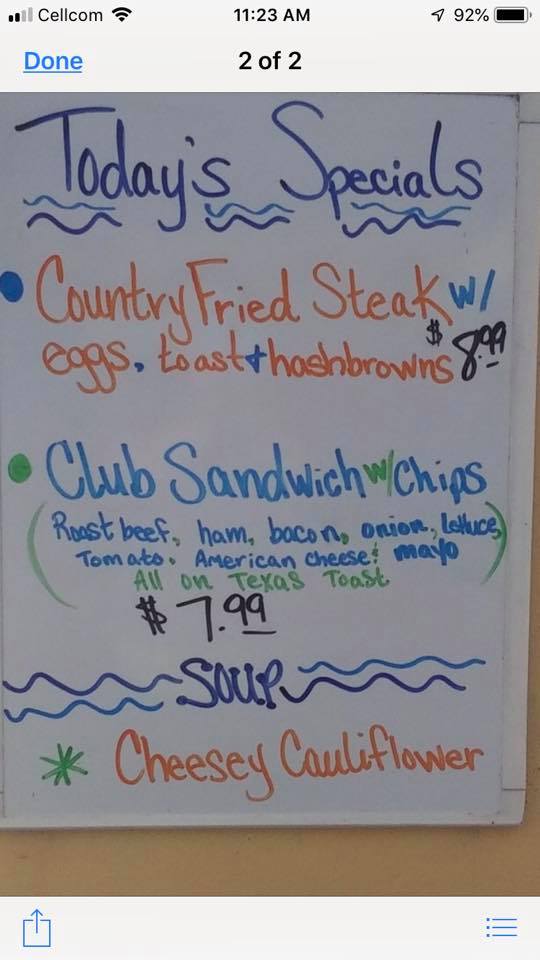 Cellcom 11:23 AM 92%
Done 2 of 2
Today's Specials
• Country Fried Steak w/
eggs, toast + hashbrowns $8.99
• Club Sandwich w/ chips
(Roast beef, ham, bacon, onion, lettuce,
Tomato, American cheese & mayo
All on Texas Toast)
$7.99
Soup
* Cheesey Cauliflower